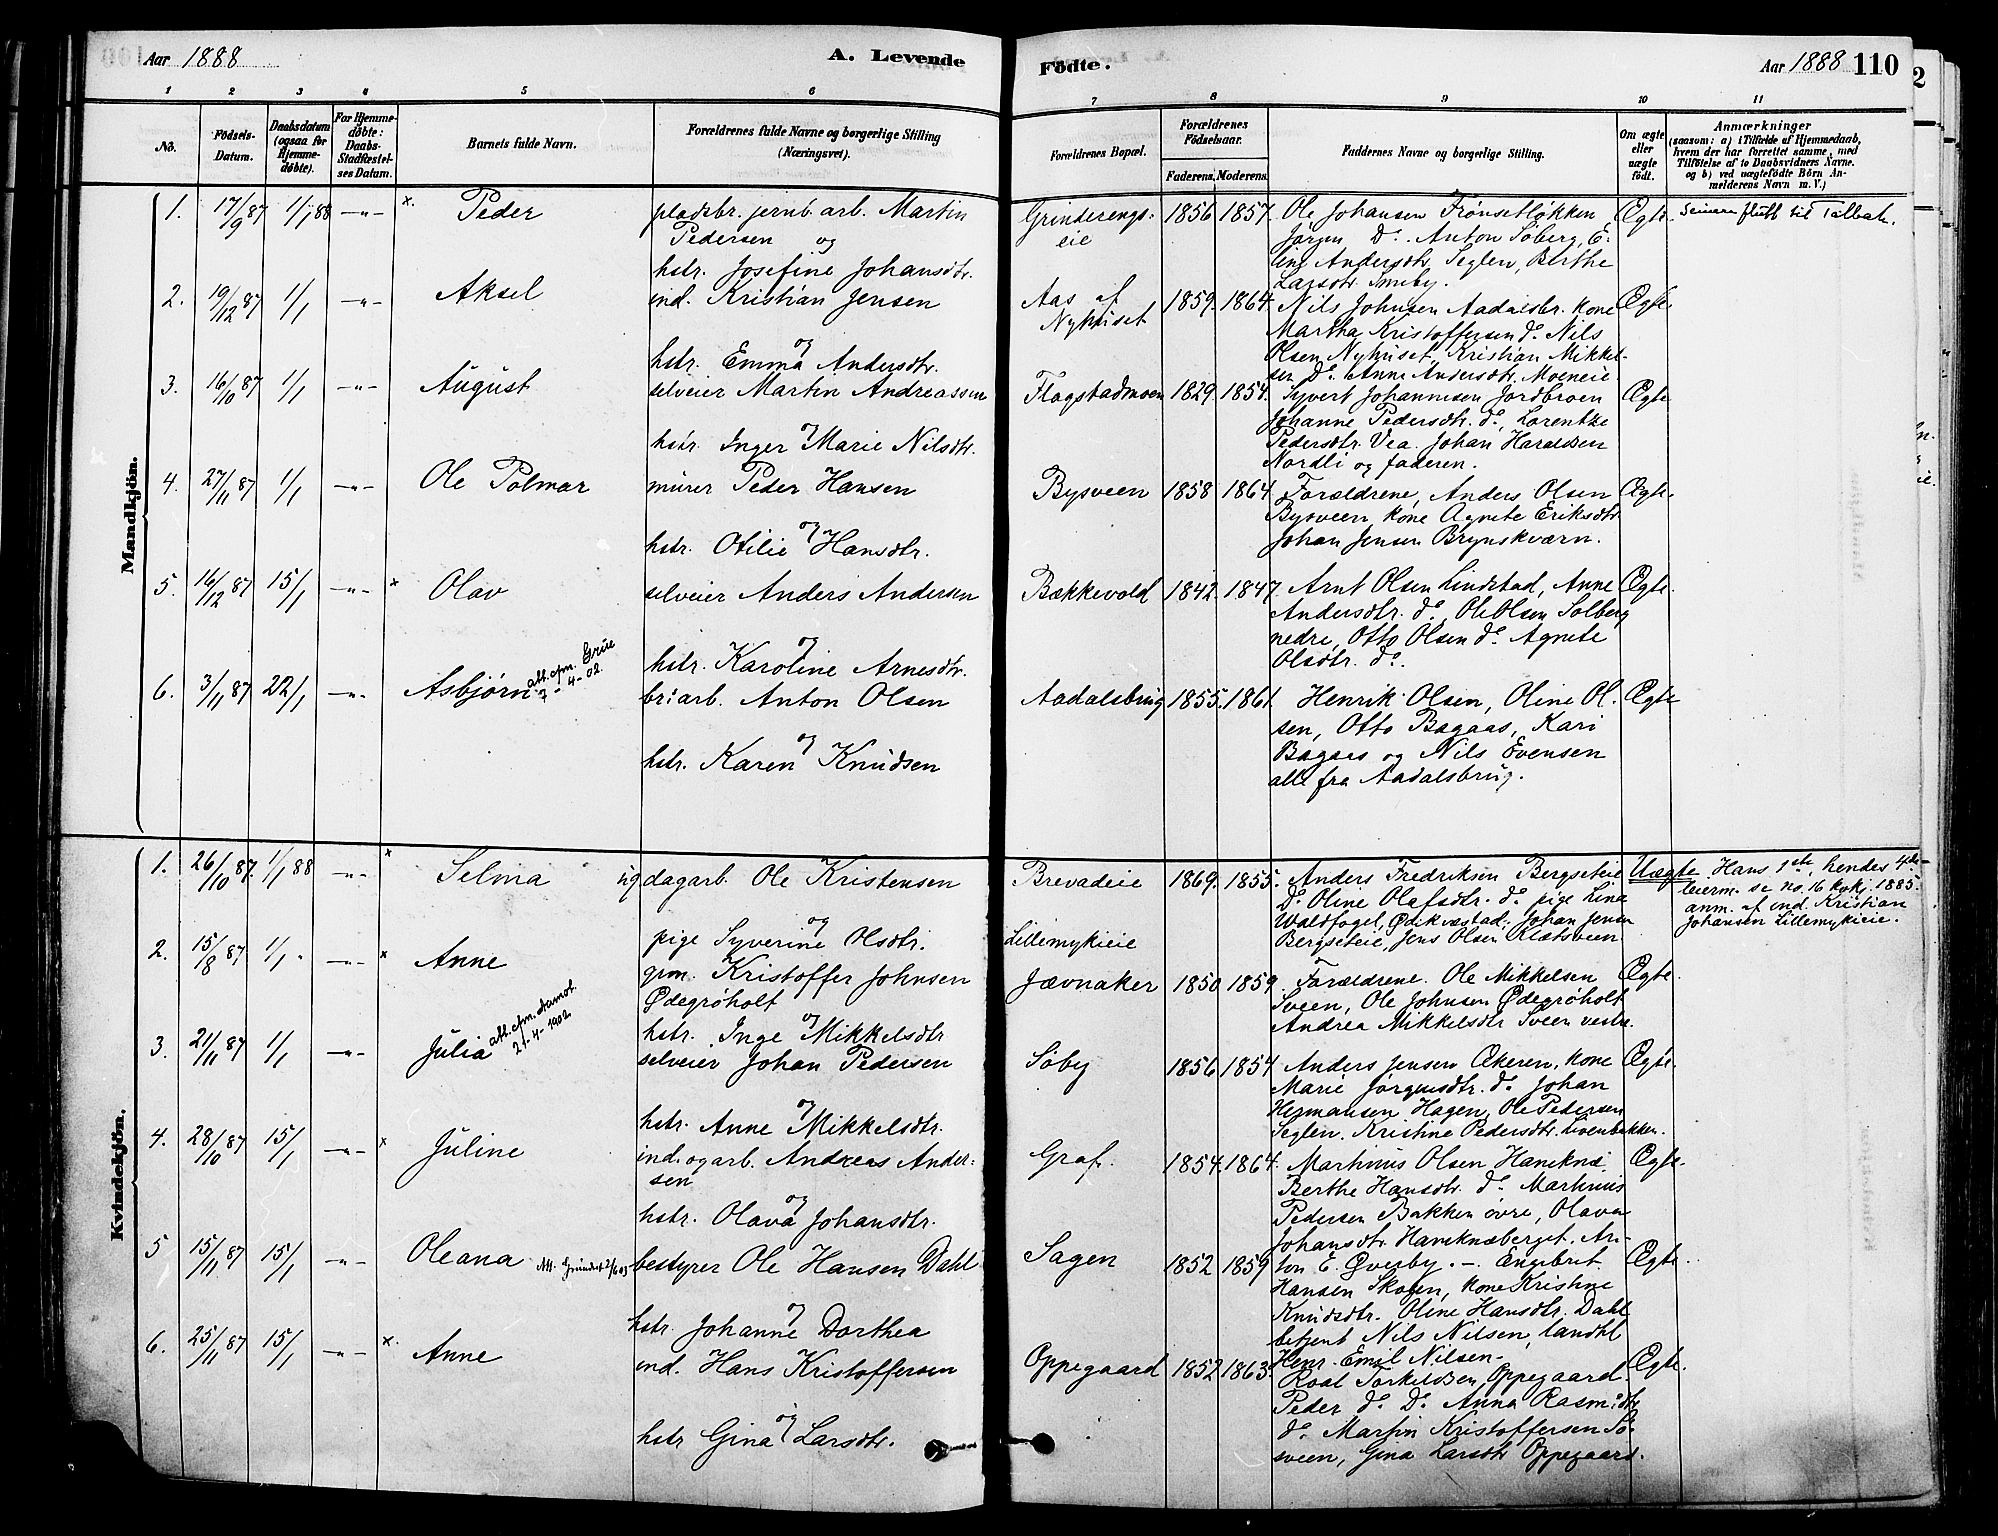 Aar 1888
A. Levende
Fødte.
Aar 1888 110
1 2 3 4 5 6
7 8 9 10 11
No.
Fødsels-Datum.
Daabsdatum (ogsaa for Hjemmedøbte).
For Hjemmedøbte: Daabs-Stadfæstelses Datum.
Barnets fulde Navn.
Forældrenes fulde Navne og borgerlige Stilling (Næringsvei).
Forældrenes Bopæl.
Forældrenes Fødselsaar.
Faderens. Moderens.
Faddernes Navne og borgerlige Stilling.
Om ægte eller uægte født.
Anmærkninger
(saasom: a) i Tilfælde af Hjemmedaab, hvem der har forrettet samme, med Tilføielse af to Daabsvidners Navne. og b) ved uægtefødte Børn Anmelderens Navn m. V.)
Mandkjön.
1. 17/9 87 1/1 88 -"- × Peder
pladsbr. jernb. arb. Martin
Pedersen og
hstr. Josefine Johansdtr.
Grinderengs-
eie
1856 1857.
Ole Johansen Frønsetløkken
Jørgen Do. Anton Søberg, E-
line Andersdtr. Seglen, Berthe
Larsdtr. Smeby.
Ægte. Senere flytt til Talbak.
2. 19/12 87 1/1 -"- Aksel
ind. Kristian Jensen
og
hstr. Emma Andersdtr.
Aas af
Nyhuset
1859. 1864.
Nils Johnsen Aadalsbr. kone
Martha Kristoffersen do. Nils
Olsen Nyhuset, Kristian Mikkel-
sen Do. Anne Andersdtr. Moeneie
Ægte.
3. 16/10 87 1/1 -"- August
selveier Martin Andreassen
og
hstr. Inger Marie Nilsdtr.
Flagstadmoen 1829. 1854.
Syvert Johannesen Jordbroen
Johanne Pedersdtr. do., Lorentze
Pedersdtr. Vea. Johan Haraldsen
Nordli og faderen.
Ægte
4. 27/11 87 1/1 -"- Ole Polmar
murer Peder Hansen
og
hstr. Otilie Hansdtr.
Bysveen 1858 1864
Forældrene, Anders Olsen
Bysveen, kone Agnete Eriksdtr.
Johan Jensen Brynskværn.
Ægte.
5. 16/12 87 15/1 -"- × Olav
selveier Anders Andersen
og
hstr. Karoline Arnesdtr.
Bækkevold 1842. 1847.
Arnt Olsen Lindstad, Anne
Andersdtr. do., Ole Olsen Solberg
nedre, Otto Olsen do. Agnete
Olsdtr. do.
Ægte.
6. 3/11 87 22/1 -"- Asbjørn att. cfm. Grue
7-4-02.
br: arb. Anton Olsen
og
hstr. Karen Knudsen
Aadalsbrug 1855. 1861.
Henrik Olsen, Oline Ol-
sen, Otto Bagaas, Kari
Bagaas og Nils Evensen
alle fra Aadalsbrug.
Ægte
Kvindekjön.
1. 26/10 87. 1/1 88 -"- × Selma
ug dagarb. Ole Kristensen
og
pige Syverine Olsdtr.
Brevadeie
Lillemykieie
1869. 1855.
Anders Fredriksen Bergseteie
Do. Oline Olafsdtr. do. pige Lina
Waldfogel, Ødikvæstad; Johan Jensen
Bergseteie, Jens Olsen Klætsveen
Uægte Hans 1ste, hendes 4de
leierm. se no. 16 kvkj. 1885.
anm. af ind. Kristian
Johansen Lillemykieie.
2. 15/8 87 1/1. -"- × Anne
grm. Kristoffer Johnsen
Ødegrøholt
og
hstr. Inge Mikkelsdtr
Jævnaker 1850 1859
Forældrene. Ole Mikkelsen
Sveen, Ole Johnsen Ødegrøholt
Andrea Mikkelsdtr Sveen vestre.
Ægte.
3. 21/11 87 1/1 -"- Julia att. cfm. Aamot.
21-4-1902
selveier Johan Pedersen
og
hstr. Anne Mikkelsdtr.
Søby 1856 1854
Anders Jensen Ekeren, kone
Marie Jørgensdtr. do. Johan
Hermansen Hagen, Ole Pedersen
Seglen. Kristine Pedersdtr.
Ægte.
4. 28/10 87 15/1 -"- × Juline
ind. og arb. Andreas Ander-
sen
og
hstr. Olava Johansdtr.
Graf. 1854. 1864.
Martinius Olsen Hameknæ
Berthe Hansdtr. do. Martinius
Pedersen Bakken øvre, Olava
Johansdtr. Hameknæberget. An-
ton E. Øverby. -
Ægte.
5 15/11 87 15/1 -"- Oleana Att. Grundset 2/6 03
bestyrer Ole Hansen Dahl
og
hstr. Johanne Dorthea
Sagen 1852 1859
Engebret
Hansen Skogen, kone Kristine
Knudsdtr. Oline Hansdtr. Dahl
betjent Nils Nilsen, landhl
Henr. Emil Nilsen-
Ægte.
6. 25/11 87 15/1 -"- × Anne
ind. Hans Kristoffersen
og
hstr Gina Larsdtr.
Oppegaard 1852 1863.
Roal Torkildsen Oppegaard.
Peder do. Do. Anna Rasm:dtr
do. Martin Kristoffersen Sø-
sveen, Gina Larsdtr Oppegaard.
Ægte.